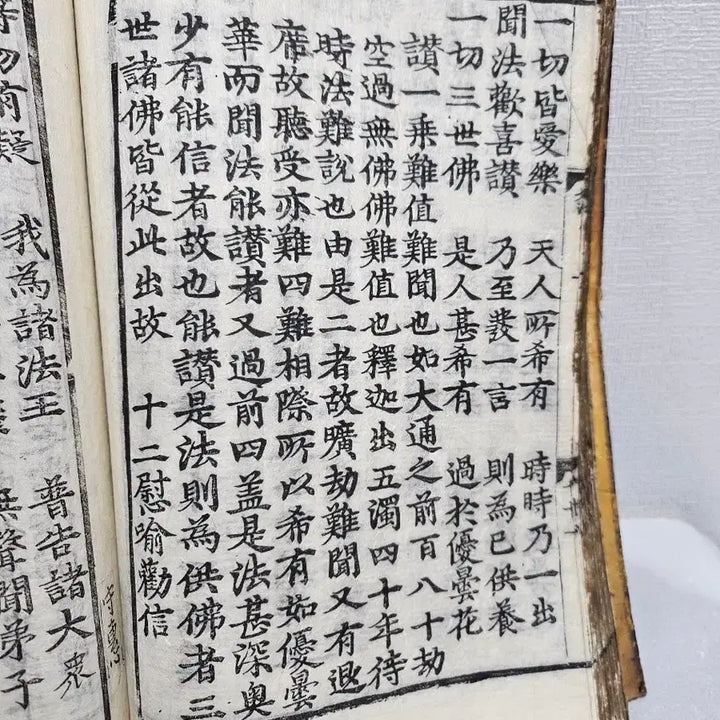 一切皆愛樂 天人所希有 時時乃一出
聞法歡喜讃 乃至發一言 則為已供養
一切三世佛 是人甚希有 過於優曇花
讃一乘難值難聞也如大通之前百八十劫
空過無佛佛難值也釋迦出五濁四十年待
時法難說也由是二者故曠劫難聞又有退
席故聽受亦難四難相際所以希有如優曇
華而聞法能讃者又過前四盖是法甚深奧
少有能信者故也能讃是法則為供佛者三
世諸佛皆從此出故 十二慰喻勸信
等勿有疑 我為諸法王 普告諸大衆
無聲聞弟子